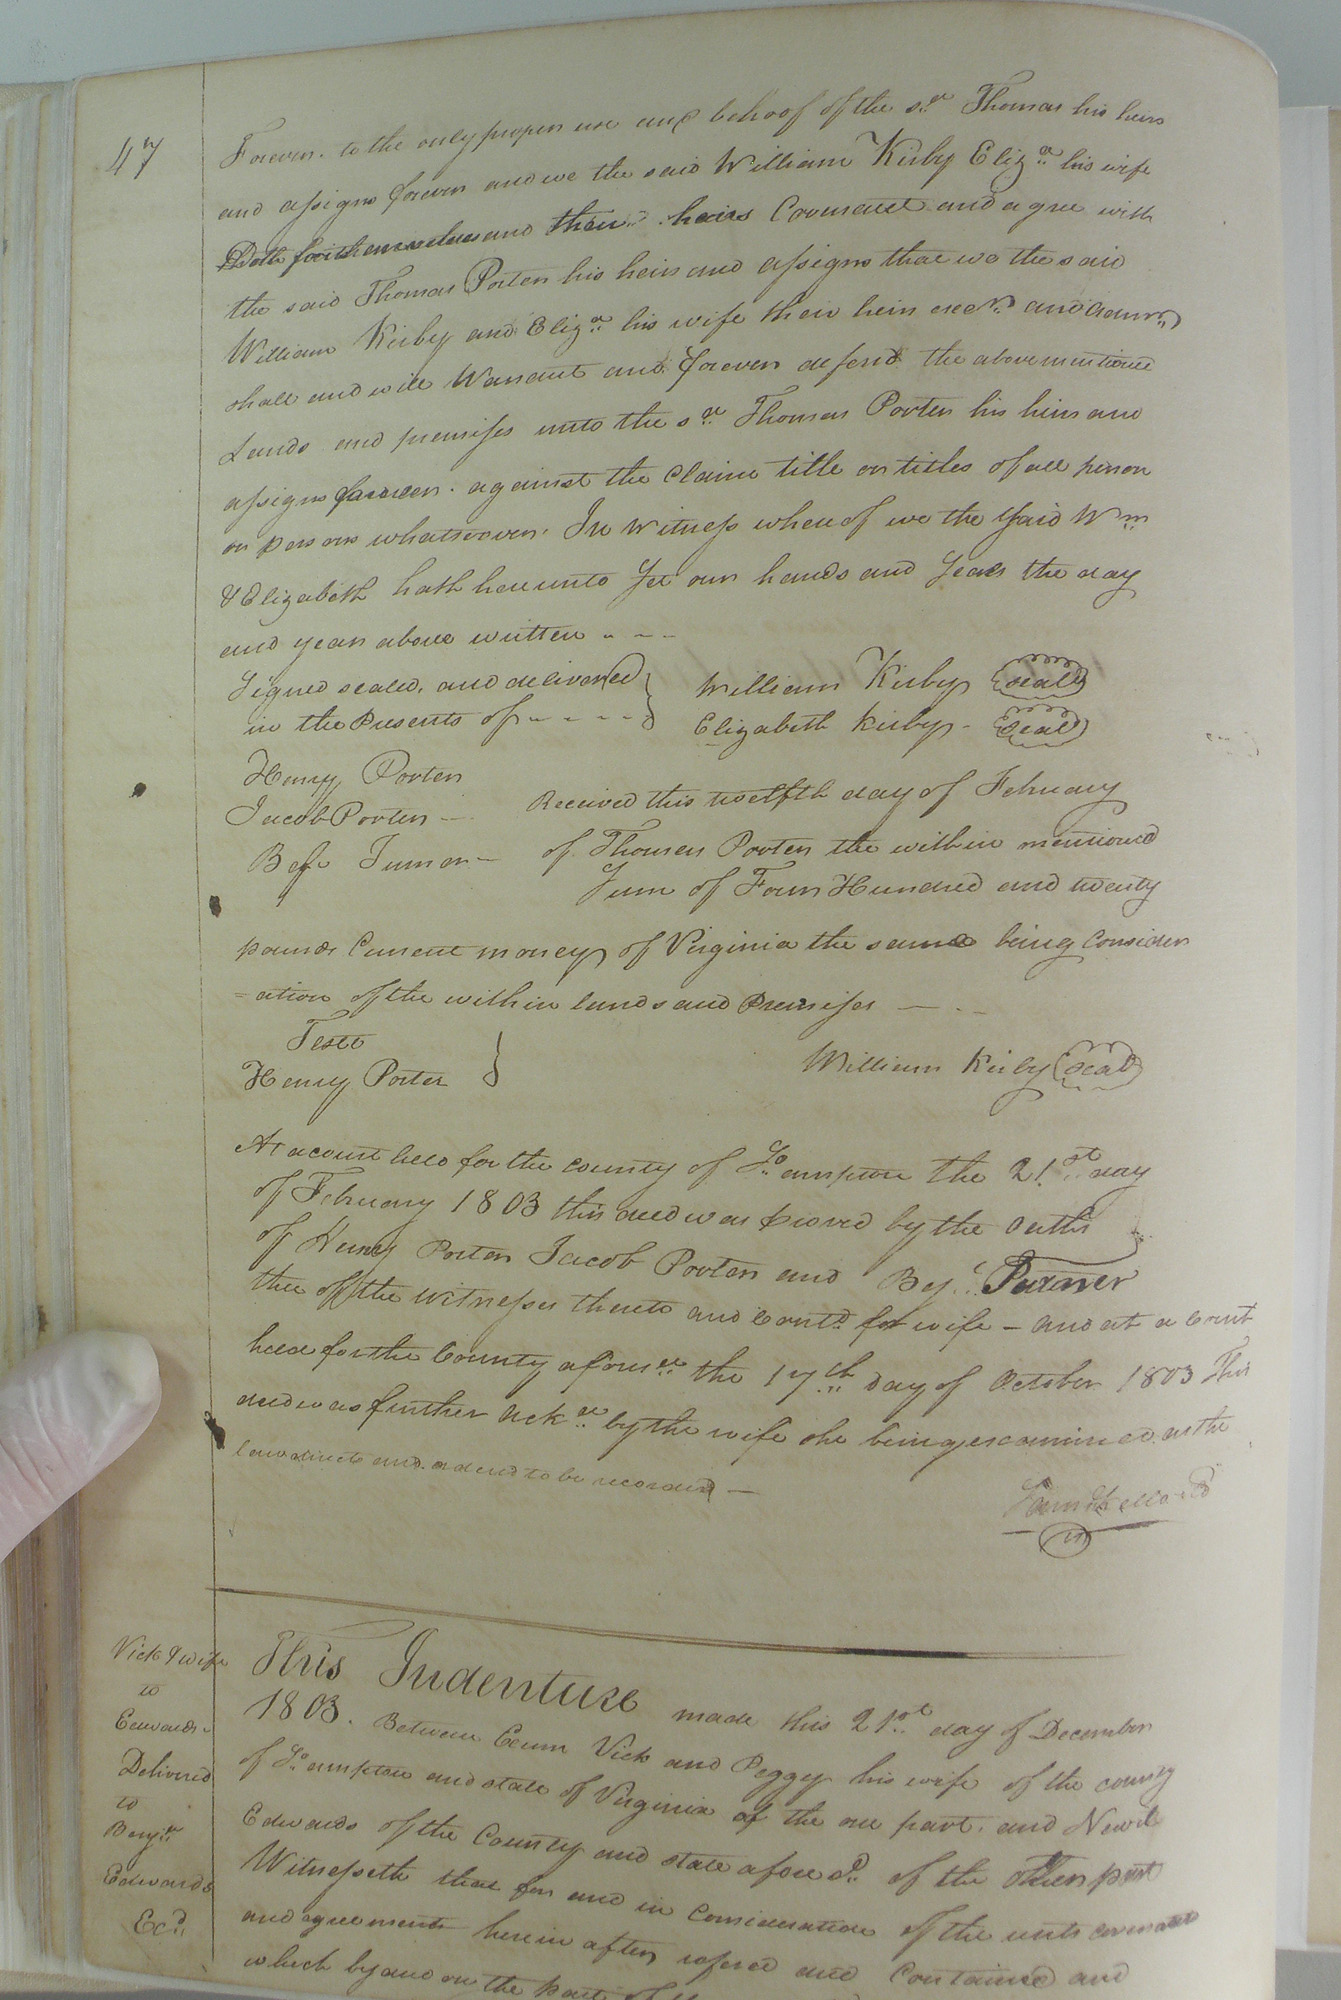 47
Forever. to the only proper use and behoof of the sd. Thomas his heirs
and assigns forever and we the said William Kirby Eliza. his wife
Doth for themselves and their heirs Covenant and agree with
the said Thomas Porter his heirs and assigns that we the said
William Kirby and Eliza. his wife their heirs exers. and admrs.
shall and will Warrant and forever defend the abovementioned
Lands and premises unto the sd. Thomas Porter his heirs and
assigns forever. against the Claim title or titles of all person
or persons whatsoever. In Witness whereof we the said Wm.
& Elizabeth hath hereunto Set our hands and Seals the day
and year above written
Signed sealed, and delivered
in the Presents of
William Kirby Seal
Elizabeth Kirby Seal
Henry Porter
Jacob Porter
Turner
Received this twelfth day of February
of Thomas Porter the within mentioned
Sum of Four Hundred and twenty
pounds Current money of Virginia the same being Consider
=ation of the within lands and Premises
Teste
Henry Porter
William Kirby Seal
At a court held for the county of So.ampton the 21st. day
of February 1803 this deed was proved by the Oaths
of Henry Porter Jacob Porter and Turner
three of the witnesses thereto and Contd. for wife - and at a Court
held for the County aforesd. the 17th. Day of October 1803 This
deed was further Ackd. by the wife she being examined as the
law directs and ordered to be recorded
Vick & wife
to
Edwards
Delivered
to
Benja.
Edwards
This Indenture made this 21st. day of December
1803. Between Vick and Peggy his wife of the county
of So.ampton and state of Virginia of the one part, and Newit
Edwards of the County and state aforesd. of the other part
Witnesseth that for and in Consideration of the rents covenants
and agreements herein after and Contained and
which by and on the part of